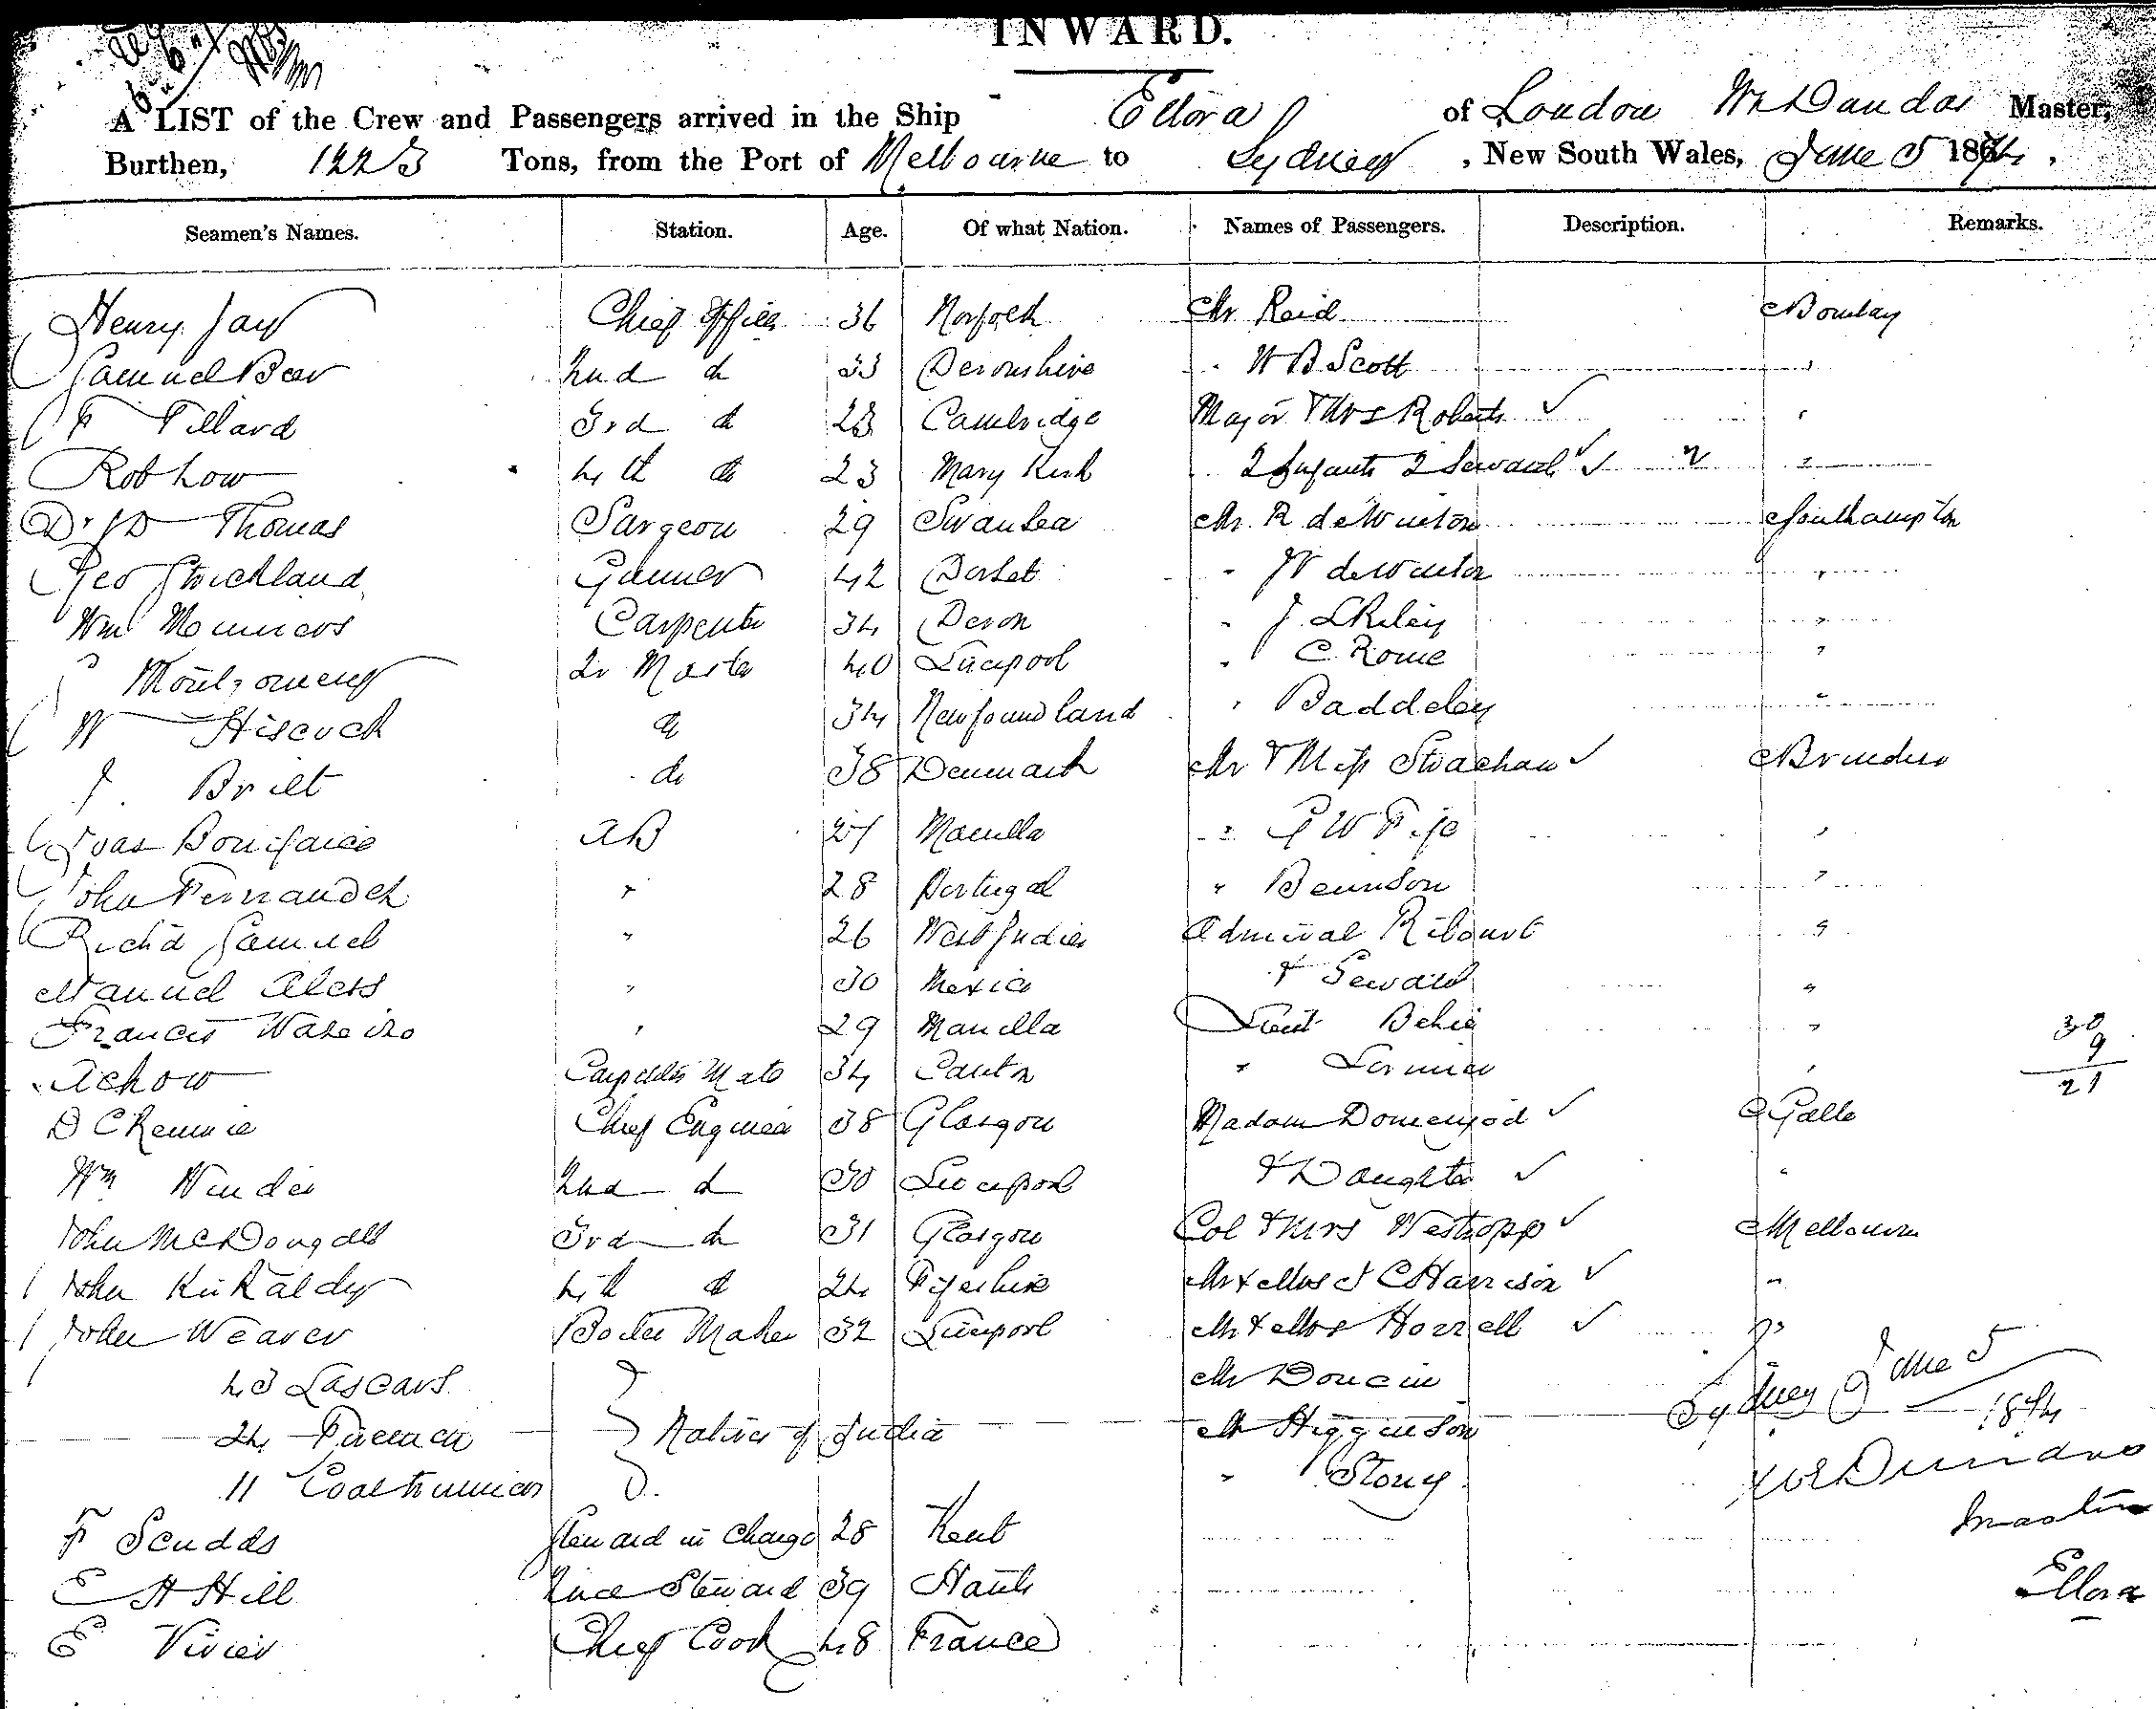 INWARD.
A LIST of the Crew and Passengers arrived in the Ship Ellora of London Dundas Master,
Burthen, 1223 Tons, from the Port of Melbourne to Sydney, New South Wales, June 5 1874,
Seamen's Names. Station. Age. Of what Nation. Names of Passengers. Description. Remarks.
Henry Jay Chief Officer 36 Norfolk Mr Reid Bombay
Samuel Bear 2nd do 33 Devonshire " W B Scott "
F Tillard 3rd do 23 Cambridge Major & Mrs Roberts ✓ "
Rob Low 4th do 23 Mary Kirk 2 Infants 2 Servants ✓ "
Dr J D Thomas Surgeon 29 Swansea Mr. R de Winton Southampton
Geo Strickland Gunner 42 Dorset " W de Winton "
Wm Mounsers Carpenter 34 Devon " J. L Riley "
Montgomery Qr Master 40 Liverpool " C. Rome "
W Hiscock do 34 Newfoundland " Baddeley "
J. Brilt do 38 Denmark Mr & Miss Strachan ✓ Brindisi
Juas Bonifaico AB 27 Manilla " G W Fife "
John Fernandez " 28 Portugal " Bennison "
Richd Samuel " 26 West Indies Admiral Ribourt "
Manuel " 30 Mexico & Servant "
Francis " 29 Manilla Lieut "
Achow Carpenters Mate 34 Canton " "
30
9
21
D C Rennie Chief Engineer 38 Glasgow Madam ✓ Galle
Wm Winder 2nd do 30 Liverpool & Daughter ✓ "
John McDougall 3rd do 31 Glasgow Col & Mrs Westropp ✓ Melbourne
John Kirkaldy 4th do 24 Fifeshire Mr & Mrs J C Harrison ✓ "
John Weaver Boiler Maker 32 Liverpool Mr & Mrs Horrell ✓ "
43 Lascars Mr
24 Firemen Natives of India Mr Higginson
11 Coaltrimmers " Stony
Sydney June 5
1874
Dundas
Master
Ellora
F Scudds Steward in Charge 28 Kent
E H Hill 2nd Steward 39 Hants
E Vivier Chief Cook 48 France